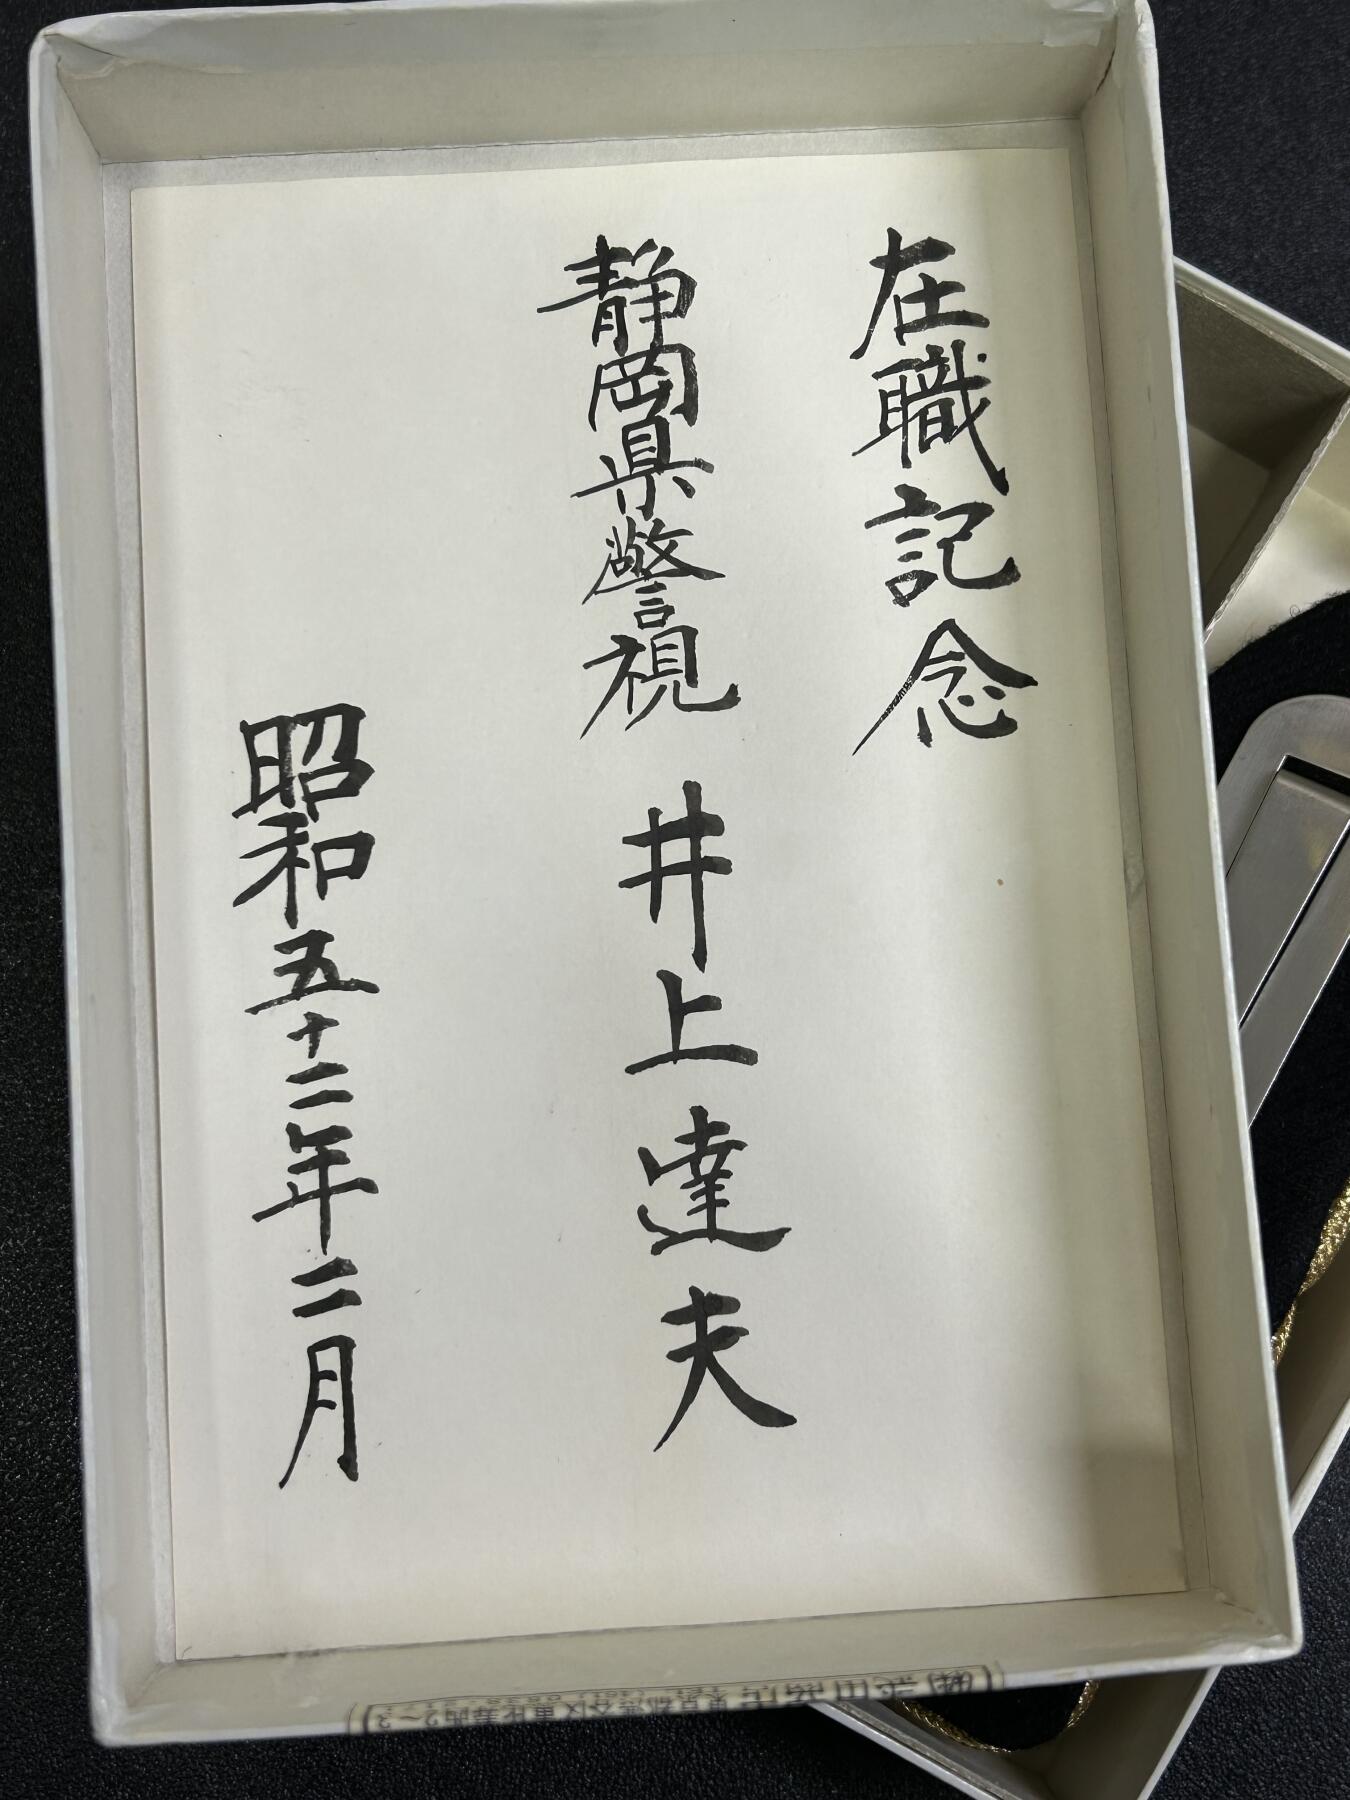 在職記念
静岡県警視 井上達夫
昭和五十二年二月